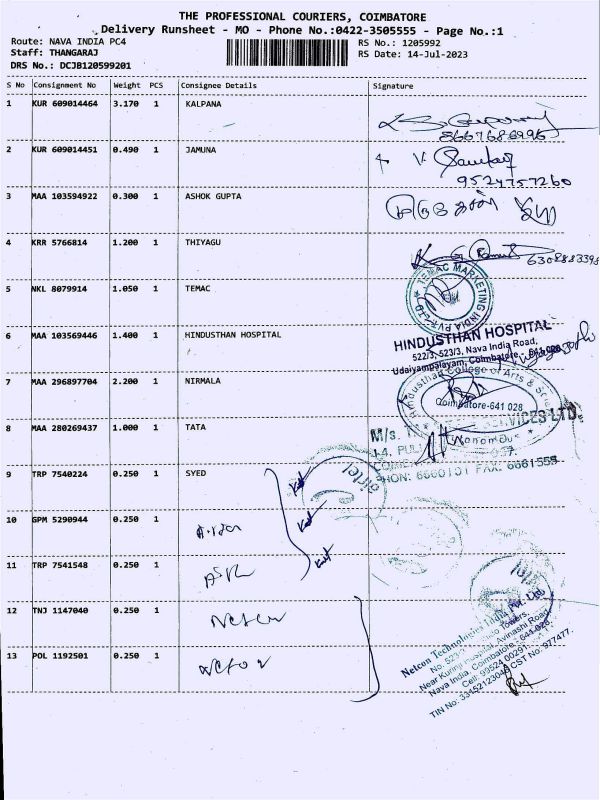 THE PROFESSIONAL COURIERS, COIMBATORE
Delivery Runsheet - MO - Phone No.:0422-3505555 - Page No.:1
Route: NAVA INDIA PC4 RS No.: 1205992
Staff: THANGARAJ RS Date: 14-Jul-2023
DRS No.: DCJB120599201
S No Consignment No Weight PCS Consignee Details Signature
1 KUR 609014464 3.170 1 KALPANA
8667686996
2 KUR 609014451 0.490 1 JAMUNA
9524757260
3 MAA 103594922 0.300 1 ASHOK GUPTA
4 KRR 5766814 1.200 1 THIYAGU
6308883398
5 NKL 8079914 1.050 1 TEMAC
TEMAC MARKETING INDIA PVT LTD
6 MAA 103569446 1.400 1 HINDUSTHAN HOSPITAL
HINDUSTHAN HOSPITAL
522/3, 523/3, Nava India Road,
Udaiyampalayam, Coimbatore - 641 028
7 MAA 296897704 2.200 1 NIRMALA
Hindusthan College of Arts &
Coimbatore-641 028
8 MAA 280269437 1.000 1 TATA
M/s. SERVICES LTD.
PHON: 6660101 FAX: 6661555
9 TRP 7540224 0.250 1 SYED
airtel
10 GPM 5290944 0.250 1
11 TRP 7541548 0.250 1
12 TNJ 1147040 0.250 1 Netcon
13 POL 1192501 0.250 1 Netcon
Netcon Technologies India Pvt. Ltd.
Near Kurinji Hospital, Avinashi Road,
Nava India, Coimbatore - 641 028.